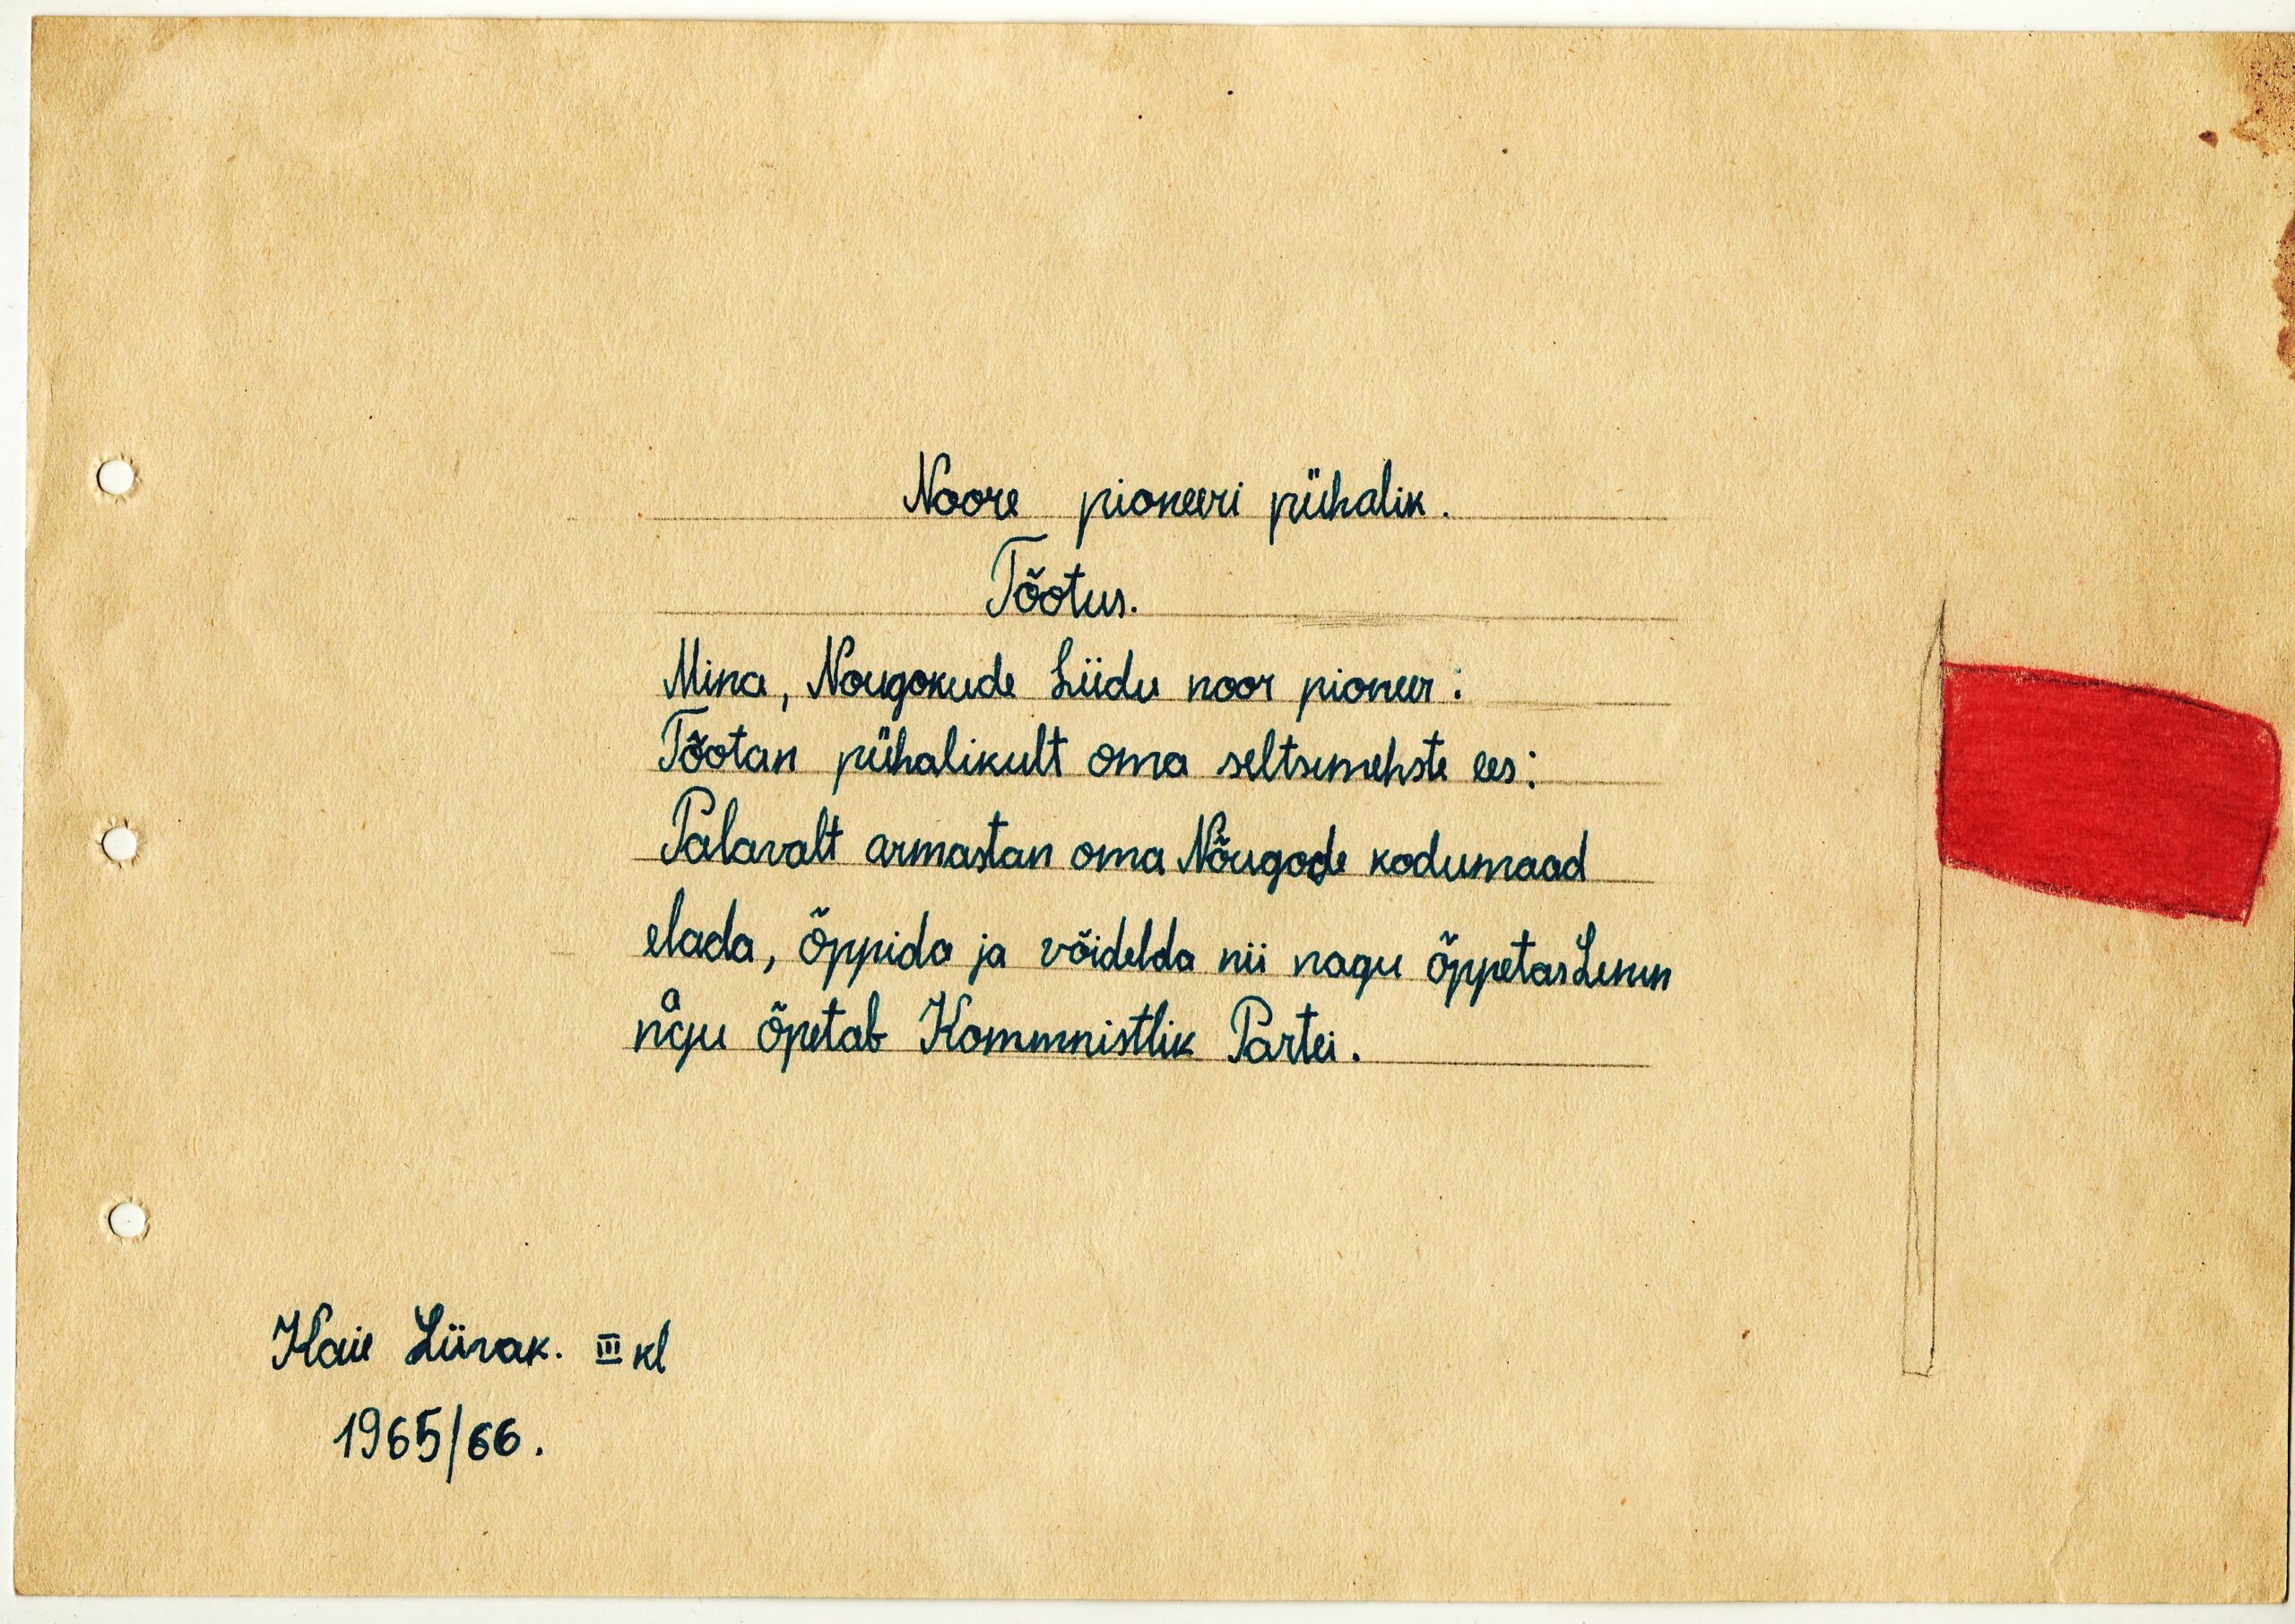 Noore pioneeri pühalik.
Tõotus.
Mina, Nougokude Liidu noor pioneer:
Tõotan pühalikult oma seltsimehste ees:
Palavalt armastan oma Nõugode kodumaad
elada, õppida ja võidelda nii nagu õppetas Lenin
nagu õpetab Kommnistlik Partei.
Kaie Liivak. III kl
1965/66.